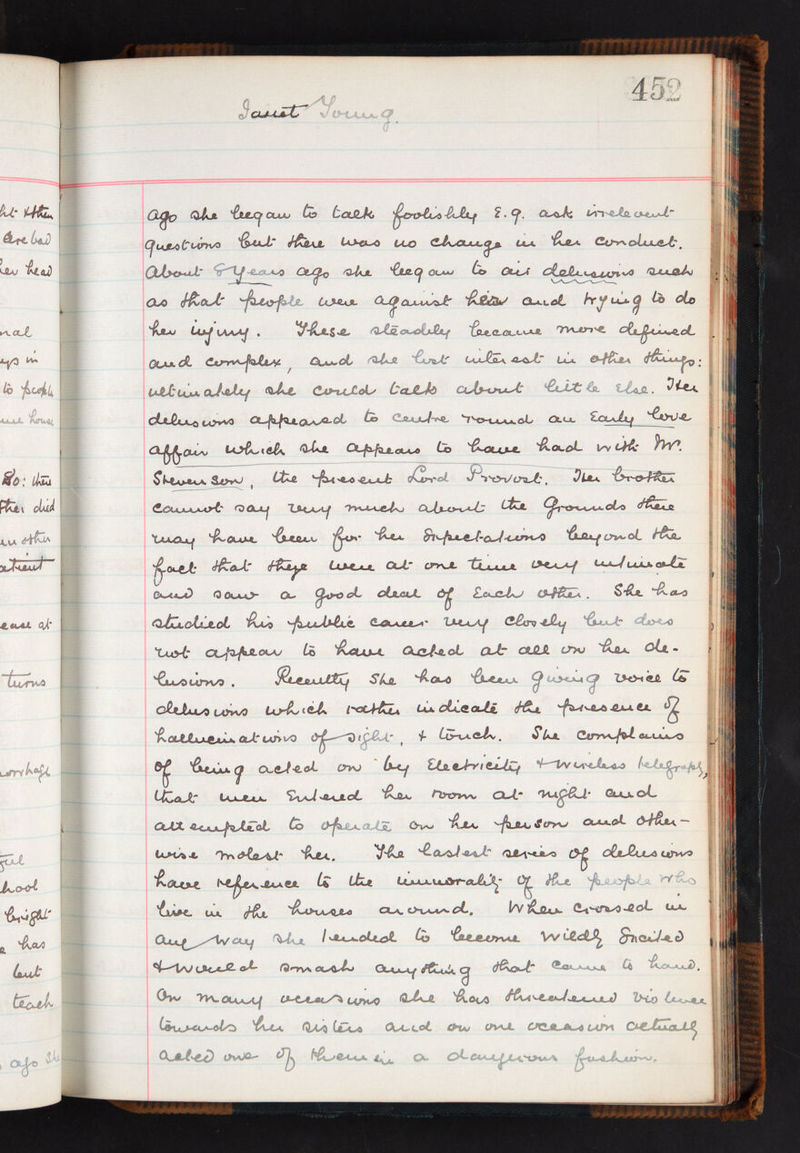 452
Janet Young.
ago she began to talk foolishly E.g. ask irrelevant
questions but there was no change in her conduct.
About 8 Years ago she began to air delusions such
as that people were against her and trying to do
her injury. These steadily became more defined
and complex, and she lost interest in other things:
ultimately she could talk about little else. Her
delusions appeared to centre round an Early love
affair which she appears to have had with Mr.
Stevenson, the present Lord Provost. Her brother
cannot say very much about the Grounds there
may have been for her Expectations beyond the
fact that they were at one time very intimate
and saw a good deal of Each other. She has
studied his public career very closely but does
not appear to have acted at all on her de-
lusions. Recently She has been Giving voice to
delusions which rather indicate the presence of
hallucinations of sight, & touch. She complains
of being acted on by Electricity & wireless telegraphy,
that men Entered her room at night and
attempted to operate on her person and other-
wise molest her. The lastest series of delusions
have reference to the immorality of the people who
live in the houses around. When crossed in
any way she tended to become wildly Excited
& would smash anything that came to hand.
On many occasions she has threatened violence
towards her sisters and on one occasion actually
acted one of them in a dangerous fashion.